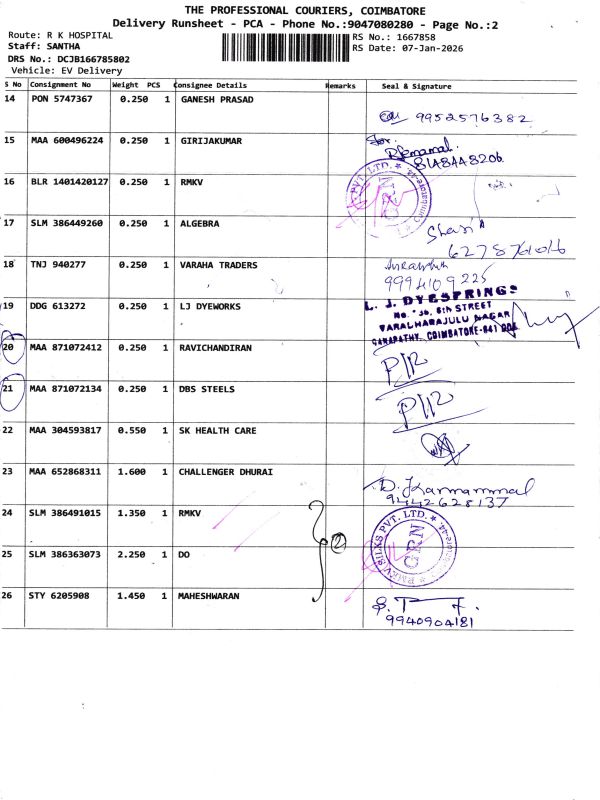 THE PROFESSIONAL COURIERS, COIMBATORE
Delivery Runsheet - PCA - Phone No.:9047080280 - Page No.:2
Route: R K HOSPITAL
Staff: SANTHA
DRS No.: DCJB166785802
Vehicle: EV Delivery
RS No.: 1667858
RS Date: 07-Jan-2026
S No Consignment No Weight PCS Consignee Details Remarks Seal & Signature
14 PON 5747367 0.250 1 GANESH PRASAD
9952576382
15 MAA 600496224 0.250 1 GIRIJAKUMAR
8148448206
16 BLR 1401420127 0.250 1 RMKV
PVT. LTD.
17 SLM 386449260 0.250 1 ALGEBRA
Shasi
18 TNJ 940277 0.250 1 VARAHA TRADERS
9994109225
19 DDG 613272 0.250 1 LJ DYEWORKS
L. J. DYESPRINGS
5th STREET
VARALHARAJULU NAGAR
GANAPATHY, COIMBATORE-641 006
20 MAA 871072412 0.250 1 RAVICHANDIRAN
21 MAA 871072134 0.250 1 DBS STEELS
22 MAA 304593817 0.550 1 SK HEALTH CARE
23 MAA 652868311 1.600 1 CHALLENGER DHURAI
D. Kannammal
9442628137
24 SLM 386491015 1.350 1 RMKV
2
RMKV SILKS PVT. LTD.
GRN
25 SLM 386363073 2.250 1 DO
26 STY 6205908 1.450 1 MAHESHWARAN
9940904181